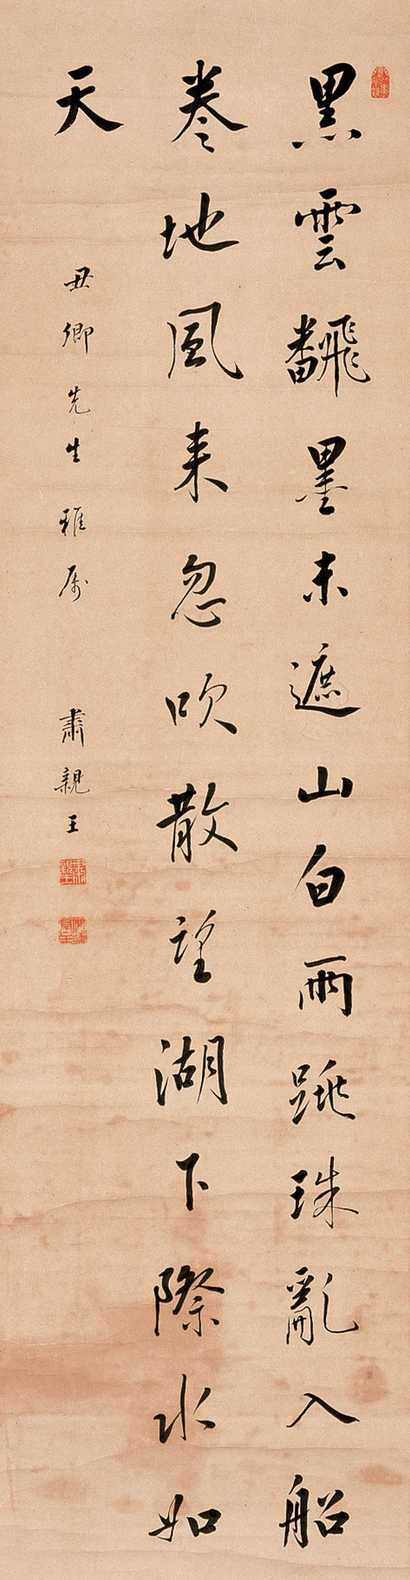 黑雲飜墨未遮山白雨跳珠亂入船
卷地風来忽吹散望湖下際水如
天
丑卿先生雅属
肅親王